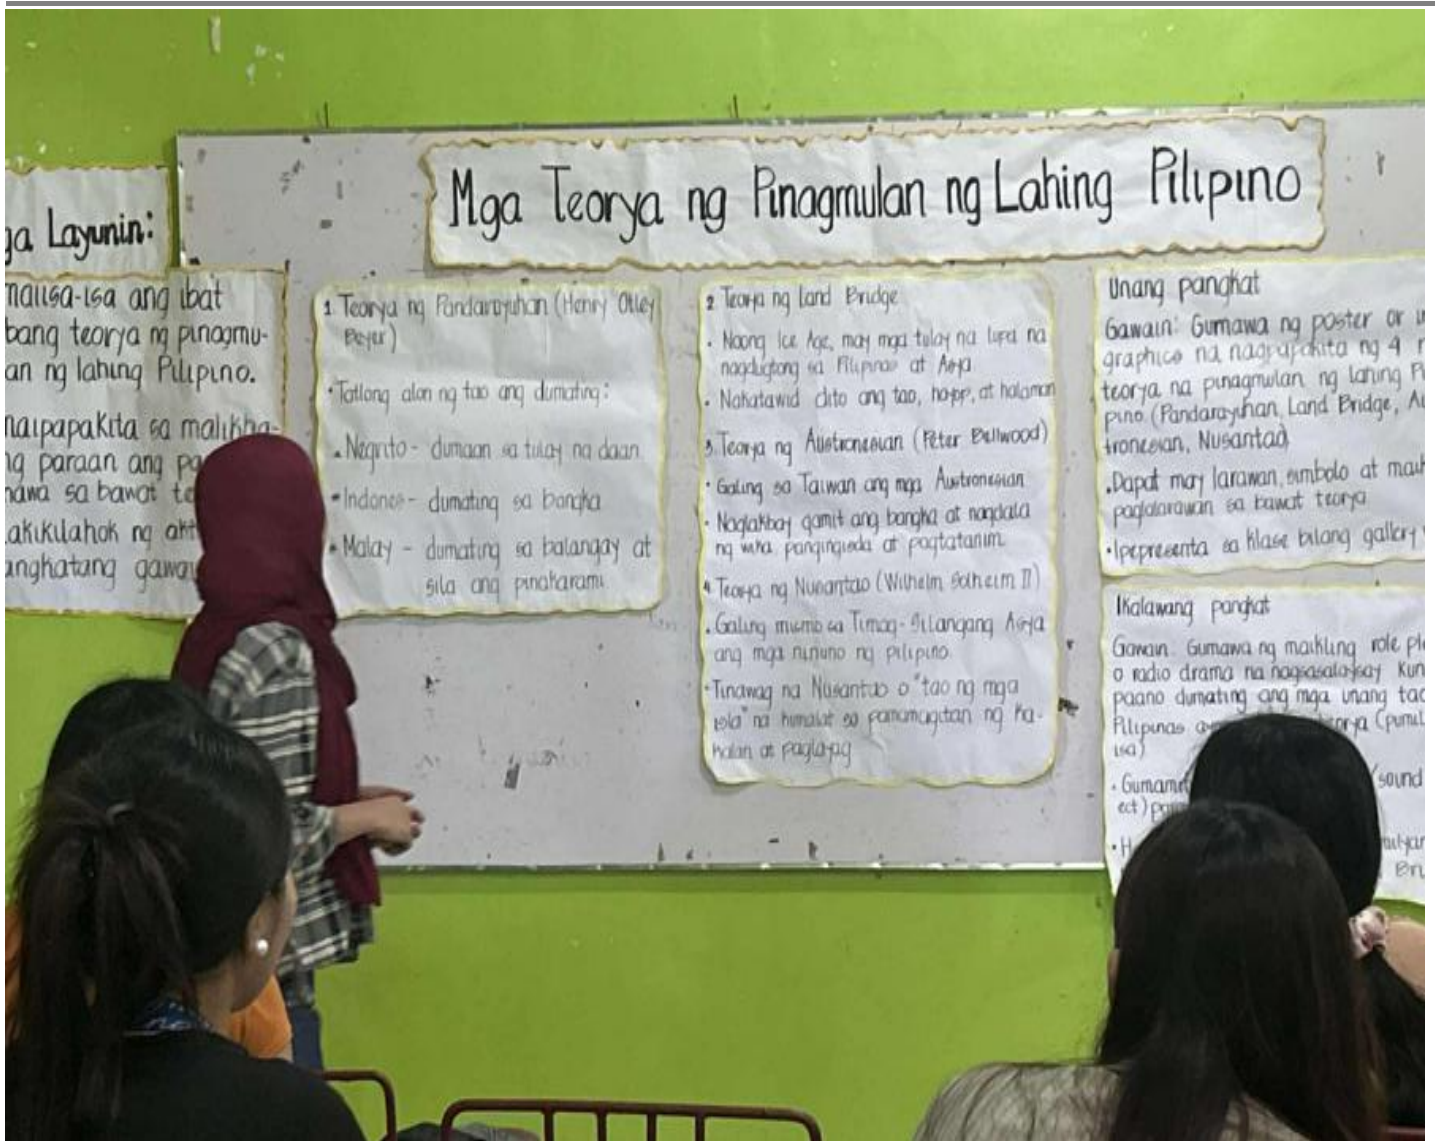 Mga Teorya ng Pinagmulan ng Lahing Pilipino
ga Layunin:
naiisa-isa ang ibat
bang teorya ng pinagmu-
an ng lahing Pilipino.
naipapakita sa malikha-
ng paraan ang
nawa sa bawat
akikilahok ng
angkatang
1. Teorya ng Pandarayuhan (Henry Otley
Beyer)
• Tatlong alon ng tao ang dumating:
• Negrito - dumaan sa tulay na daan
• Indones - dumating sa bangka
• Malay - dumating sa balangay at
sila ang pinakarami
2 Teorya ng Land Bridge
• Noong Ice Age, may mga tulay na lupa na
nagdugtong sa Pilipinas at Asya
• Nakatawid dito ang tao, hayop, at halaman
3. Teorya ng Austronesian (Peter Bellwood)
• Galing sa Taiwan ang mga Austronesian
• Naglakbay gamit ang bangka at nagdala
ng wika pangingisda at pagtatanim
4 Teorya ng Nusantao (Wilhelm Solheim II)
• Galing mismo sa Timog-Silangang Asya
ang mga ninuno ng pilipino
• Tinawag na Nusantao o "tao ng mga
isla" na kumalat sa pamamagitan ng ka-
halan at paglayag
Unang pangkat
Gawain: Gumawa ng poster or
graphics na nagpapakita ng 4
teorya na pinagmulan ng lahing
pino (Pandarayuhan, Land Bridge, Au
tronesian, Nusantao)
• Dapat may larawan, simbolo at
paglalarawan sa bawat teorya
• Ipepresenta sa klase bilang gallery
Ikalawang pangkat
Gawain: Gumawa ng maikling role
o radio drama na nagsasalaysay kun
paano dumating ang mga unang tao
Pilipinas
isa)
(sound
ect)